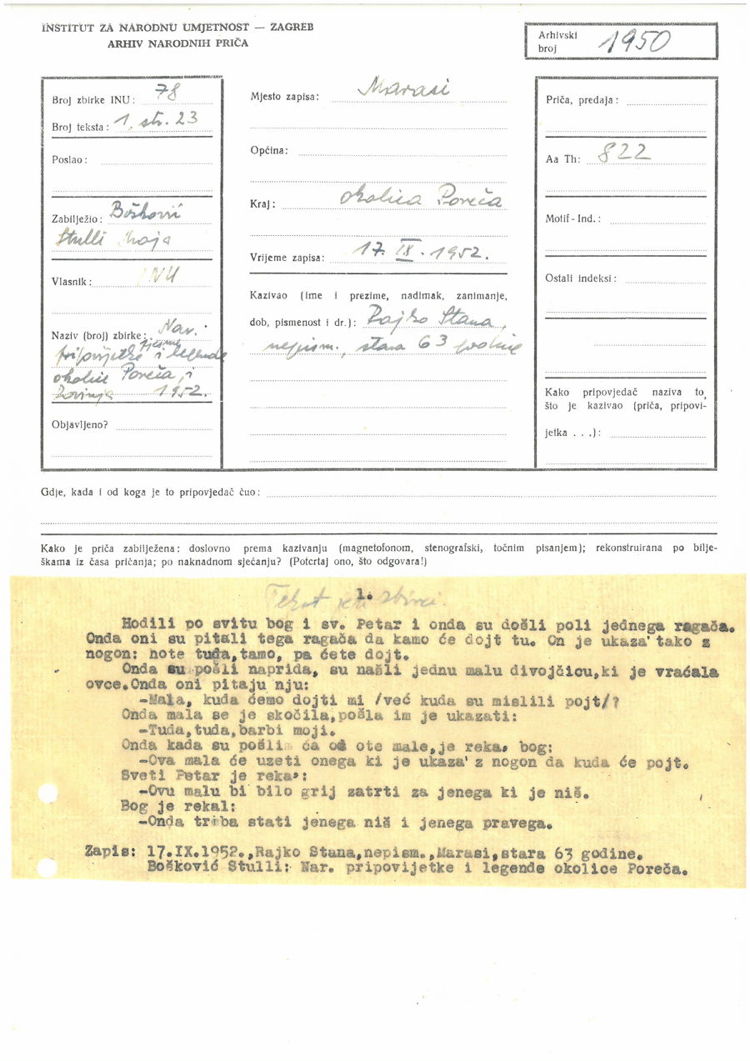 INSTITUT ZA NARODNU UMJETNOST — ZAGREB
ARHIV NARODNIH PRIČA
Arhivski
broj 1950
Broj zbirke INU: 78
Broj teksta: 1, str. 23
Poslao:
Zabilježio: Bošković
Stulli Maja
Vlasnik: INU
Naziv (broj) zbirke: Nar.
pjesme
pripovijetke i legende
okolice Poreča i
Rovinja 1952.
Objavljeno?
Mjesto zapisa: Marasi
Općina:
Kraj: okolica Poreča
Vrijeme zapisa: 17. IX. 1952.
Kazivao (ime i prezime, nadimak, zanimanje,
dob, pismenost i dr.): Rajko Stana,
nepism., stara 63 godine
Priča, predaja:
Aa Th: 822
Motif-Ind.:
Ostali indeksi:
Kako pripovjedač naziva to,
što je kazivao (priča, pripovi-
jetka . . .):
Gdje, kada i od koga je to pripovjedač čuo:
Kako je priča zabilježena: doslovno prema kazivanju (magnetofonom, stenografski, točnim pisanjem); rekonstruirana po bilje-
škama iz časa pričanja; po naknadnom sjećanju? (Potcrtaj ono, što odgovara!)
1.
Tekst u zbirci.
Hodili po svitu bog i sv. Petar i onda su došli poli jednega ragača.
Onda oni su pitali tega ragača da kamo će dojt tu. On je ukaza' tako z
nogon: note tuda,tamo, pa ćete dojt.
Onda su pošli naprida, su našli jednu malu divojčicu,ki je vraćala
ovce.Onda oni pitaju nju:
-Mala, kuda ćemo dojti mi /već kuda su mislili pojt/?
Onda mala se je skočila,pošla im je ukazati:
-Tuda,tuda,barbi moji.
Onda kada su pošli ća od ote male,je reka' bog:
-Ova mala će uzeti onega ki je ukaza' z nogon da kuda će pojt.
Sveti Petar je reka':
-Ovu malu bi bilo grij zatrti za jenega ki je niš.
Bog je rekal:
-Onda treba stati jenega niš i jenega pravega.
Zapis: 17.IX.1952.,Rajko Stana,nepism.,Marasi,stara 63 godine.
Bošković Stulli: Nar. pripovijetke i legende okolice Poreča.